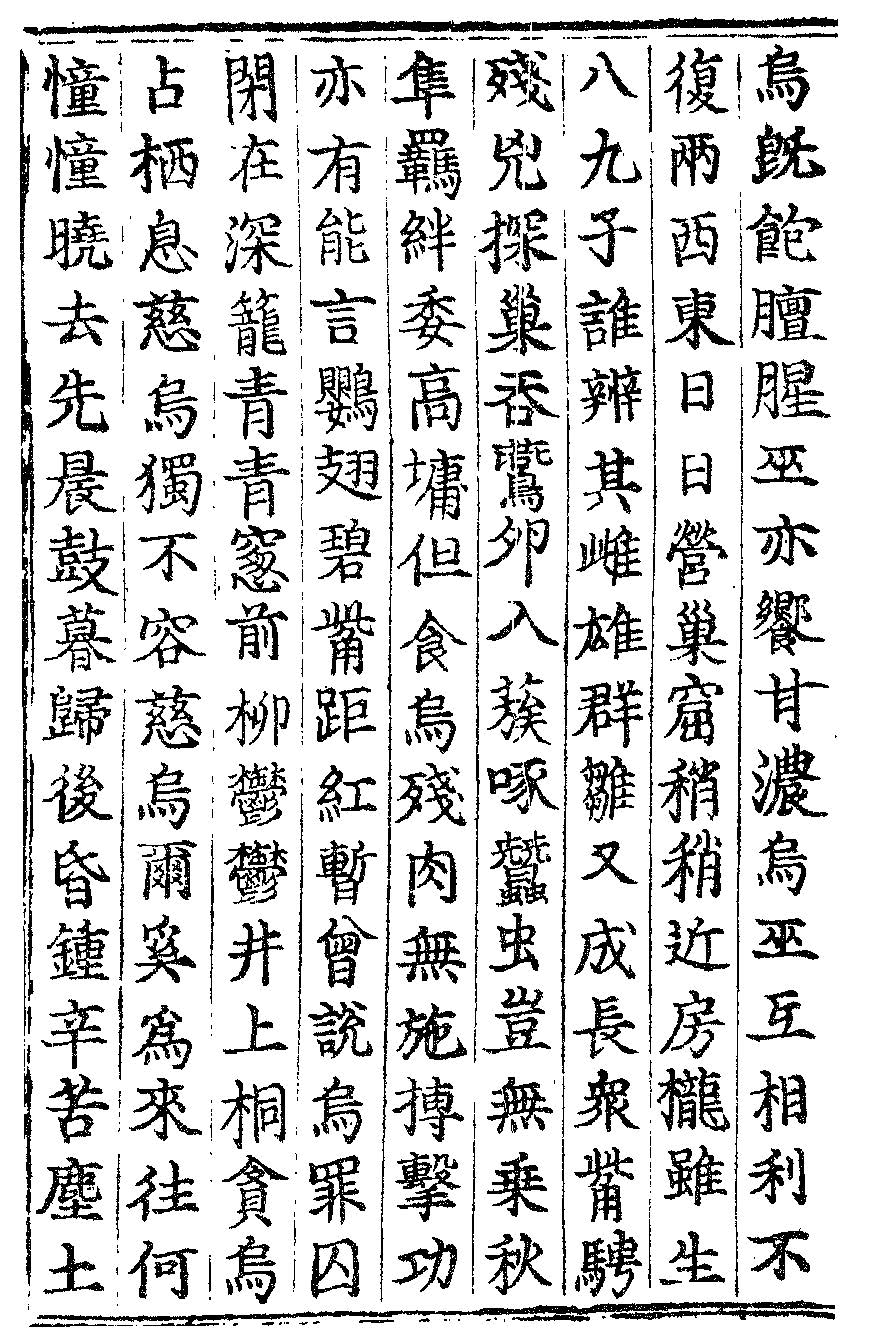 烏既飽膻腥巫亦饗甘濃烏巫互相利不
復兩西東日日營巢窟稍稍近房櫳雖生
八九子誰辨其雌雄群雛又成長衆觜騁
殘兇探巢吞鷰卵入蔟啄蠶虫豈無乗秋
隼羈絆委高墉但食烏殘肉無施搏擊功
亦有能言鸚翅碧觜距紅暫曾說烏罪囚
閑在深籠青青窻前柳鬱鬱井上桐貪烏
占栖息慈烏獨不容慈烏爾奚爲來往何
憧憧曉去先晨鼓暮歸後昏鍾辛苦塵土